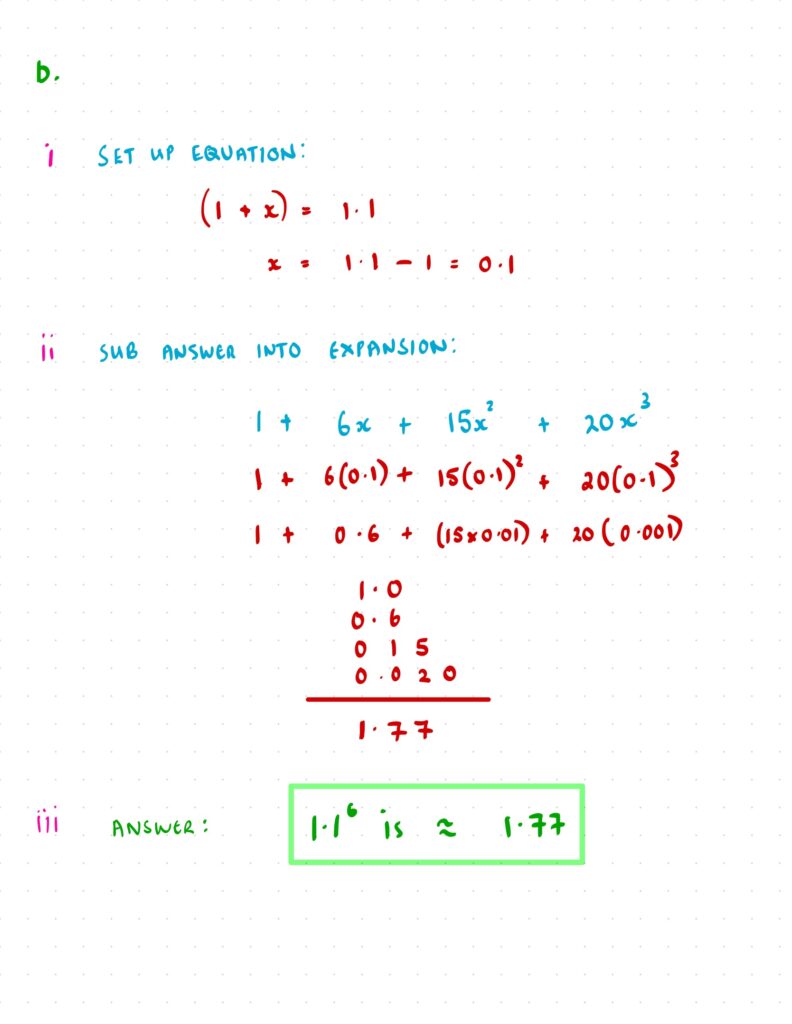 b.
i SET UP EQUATION:
(1 + x) = 1.1
x = 1.1 - 1 = 0.1
ii SUB ANSWER INTO EXPANSION:
1 + 6x + 15x² + 20x³
1 + 6(0.1) + 15(0.1)² + 20(0.1)³
1 + 0.6 + (15x0.01) + 20(0.001)
1.0
0.6
0 1 5
0.020
1.77
iii ANSWER: 1.1⁶ is ≈ 1.77